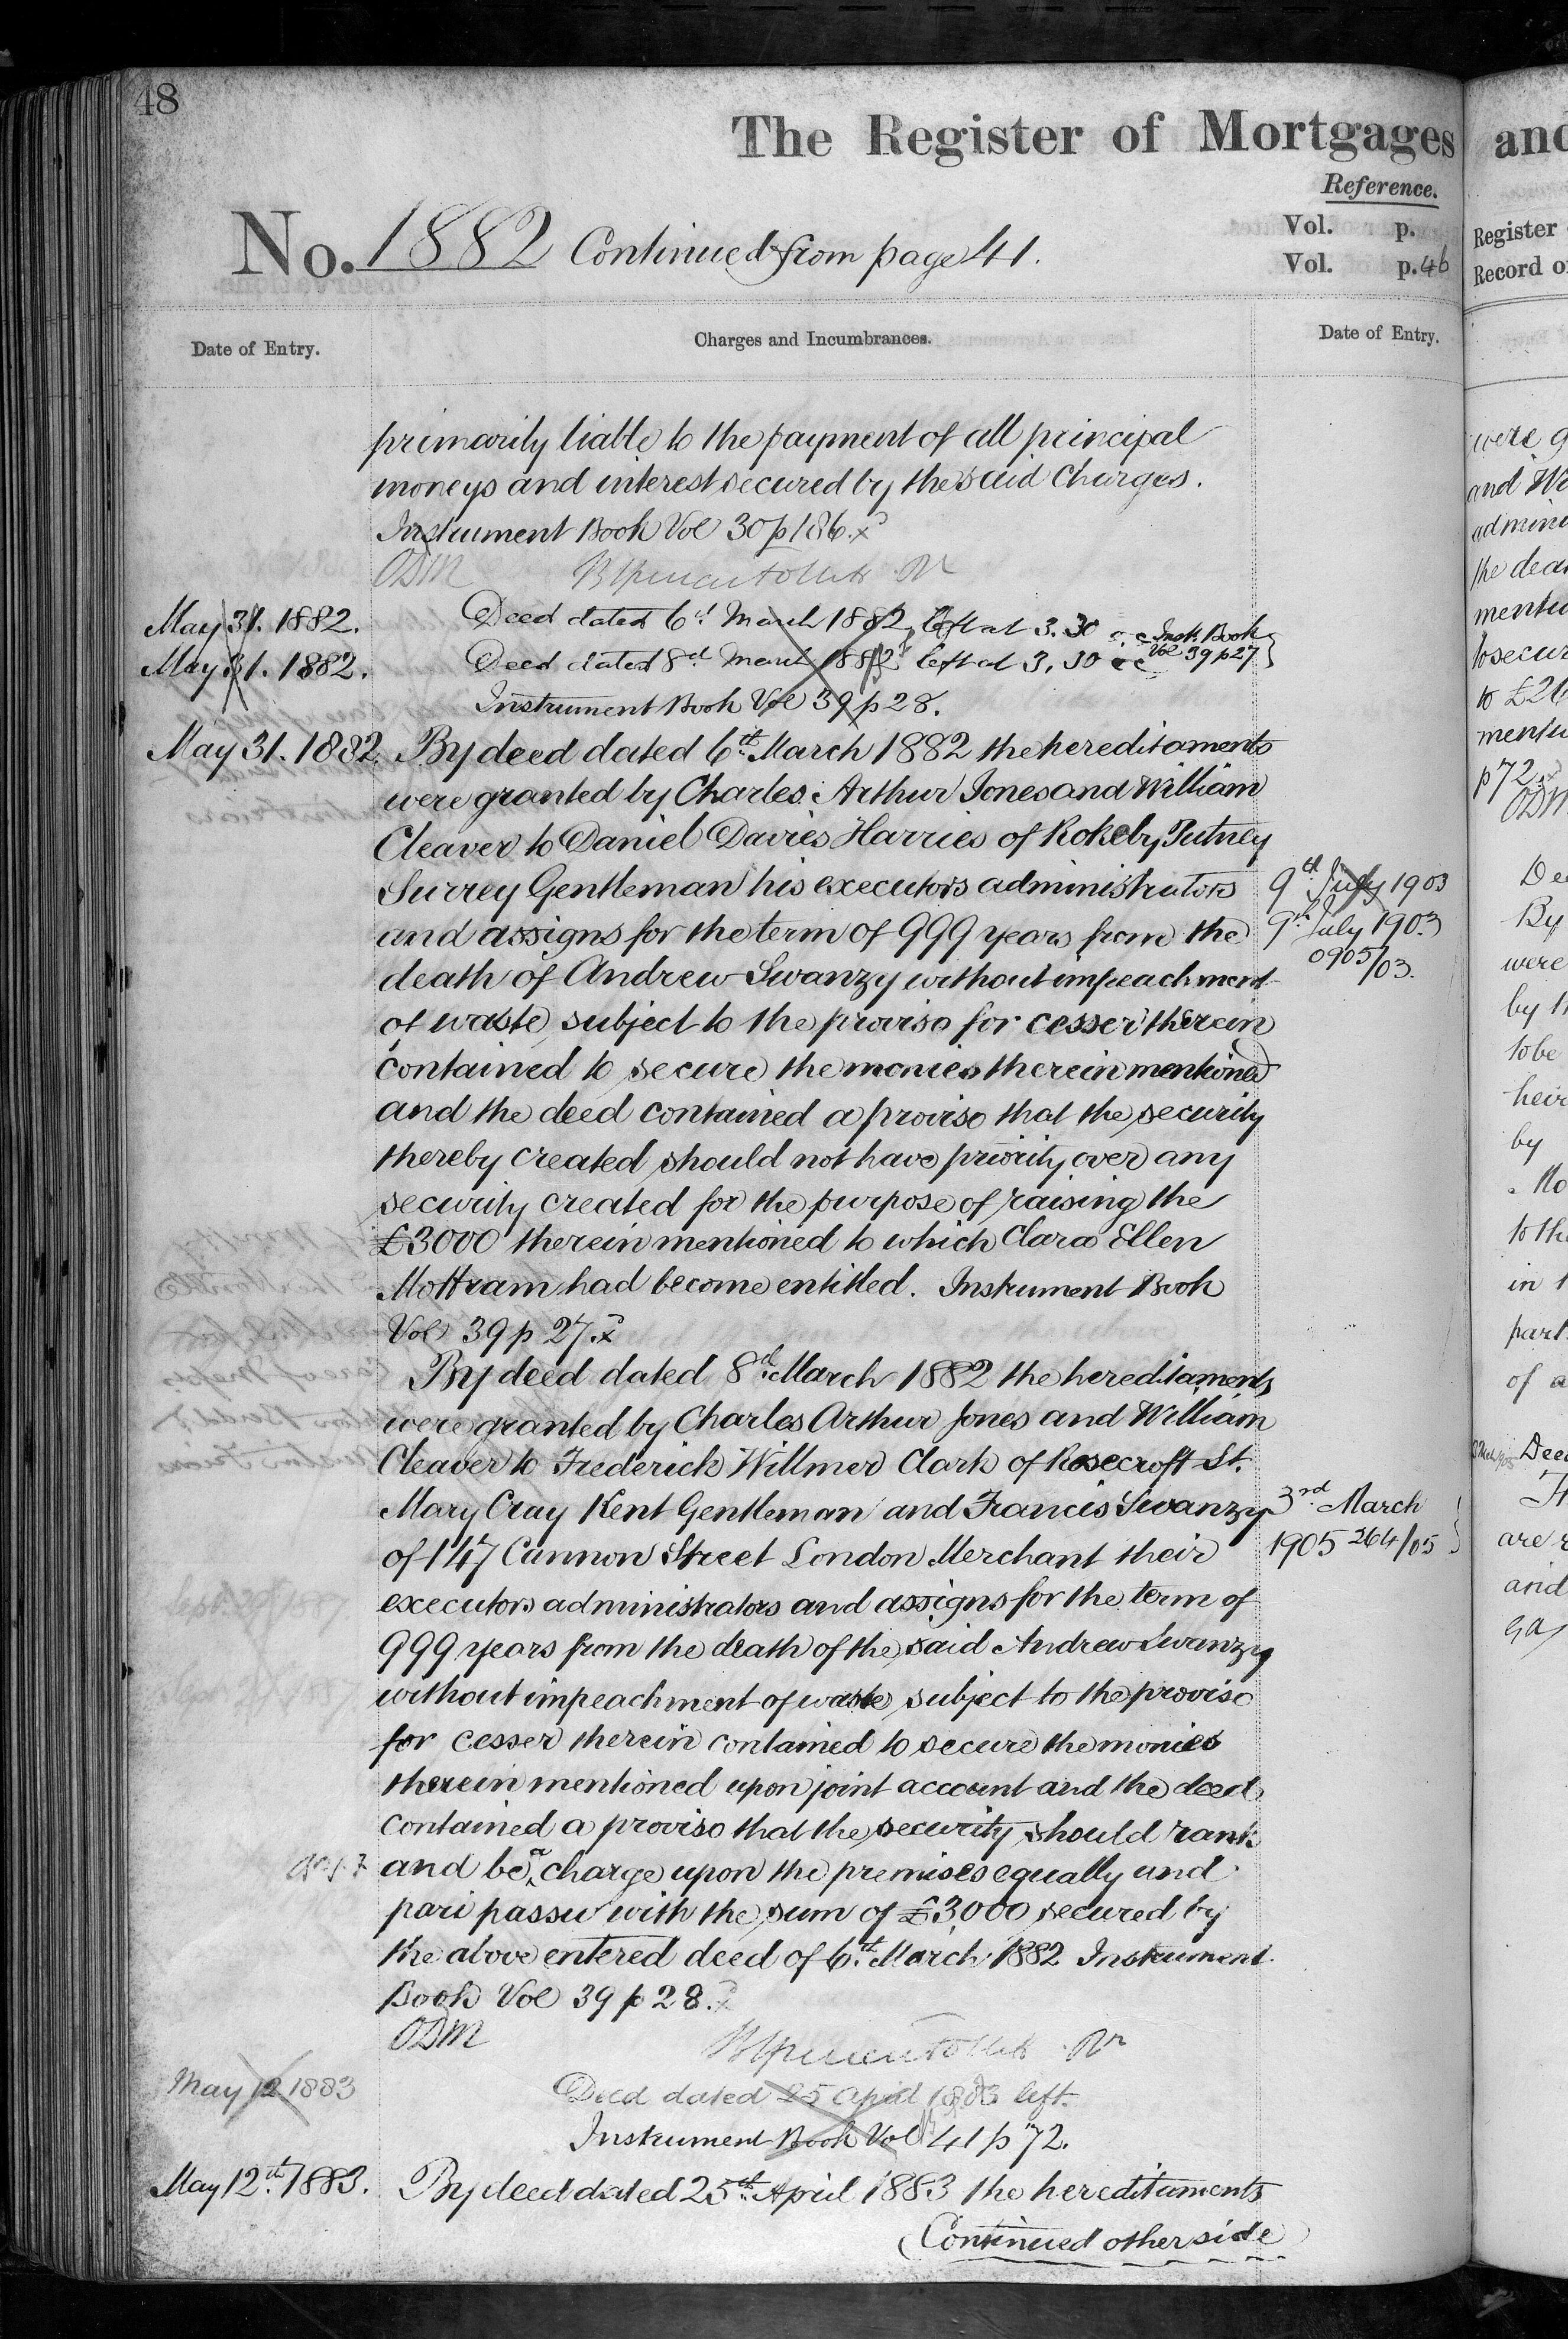 48
The Register of Mortgages and
Reference.
No. 1882 Continued from page 41.
Vol. p.
Vol. p. 46
Register
Record o
Date of Entry.
Charges and Incumbrances.
Date of Entry.
primarily liable to the payment of all principal
moneys and interest secured by the said Charges.
Instrument Book Vol 30 p 186.
ODM
May 31. 1882. Deed dated 6th March 1882 left at 3.30 Inst. Book
Vol 39 p 27
May 31. 1882. Deed dated 8th March 1882 left at 3.30
Instrument Book Vol 39 p 28.
May 31. 1882. By deed dated 6th March 1882 the hereditaments
were granted by Charles Arthur Jones and William
Cleaver to Daniel Davies Harries of Rokeby Putney
Surrey Gentleman his executors administrators
9th July 1903
and assigns for the term of 999 years from the
9th July 1903
0905/03.
death of Andrew Swanzy without impeachment
of waste subject to the proviso for cesser therein
contained to secure the monies therein mentioned
and the deed contained a proviso that the security
thereby created should not have priority over any
security created for the purpose of raising the
£3000 therein mentioned to which Clara Ellen
Mottram had become entitled. Instrument Book
Vol 39 p 27.
By deed dated 8th March 1882 the hereditaments
were granted by Charles Arthur Jones and William
Cleaver to Frederick Willmer Clark of Rosecroft St.
Mary Cray Kent Gentleman and Francis Swanzy
3rd March
of 147 Cannon Street London Merchant their
1905 264/05
executors administrators and assigns for the term of
999 years from the death of the said Andrew Swanzy
without impeachment of waste subject to the proviso
for cesser therein contained to secure the monies
therein mentioned upon joint account and the deed
contained a proviso that the security should rank
and be a charge upon the premises equally and
pari passu with the sum of £3,000 secured by
the above entered deed of 6th March 1882 Instrument
Book Vol 39 p 28.
ODM
May 12 1883 Deed dated 25 April 1883 left.
Instrument Book Vol 41 p 72.
May 12th 1883. By deed dated 25th April 1883 the hereditaments
(Continued other side)
were g
and Wi
admini
the dea
mentio
to secur
to £26
mentio
p 72
ODM
De
By
were
by th
to be
heir
by
No
to the
in t
part
of a
Deed
are
and